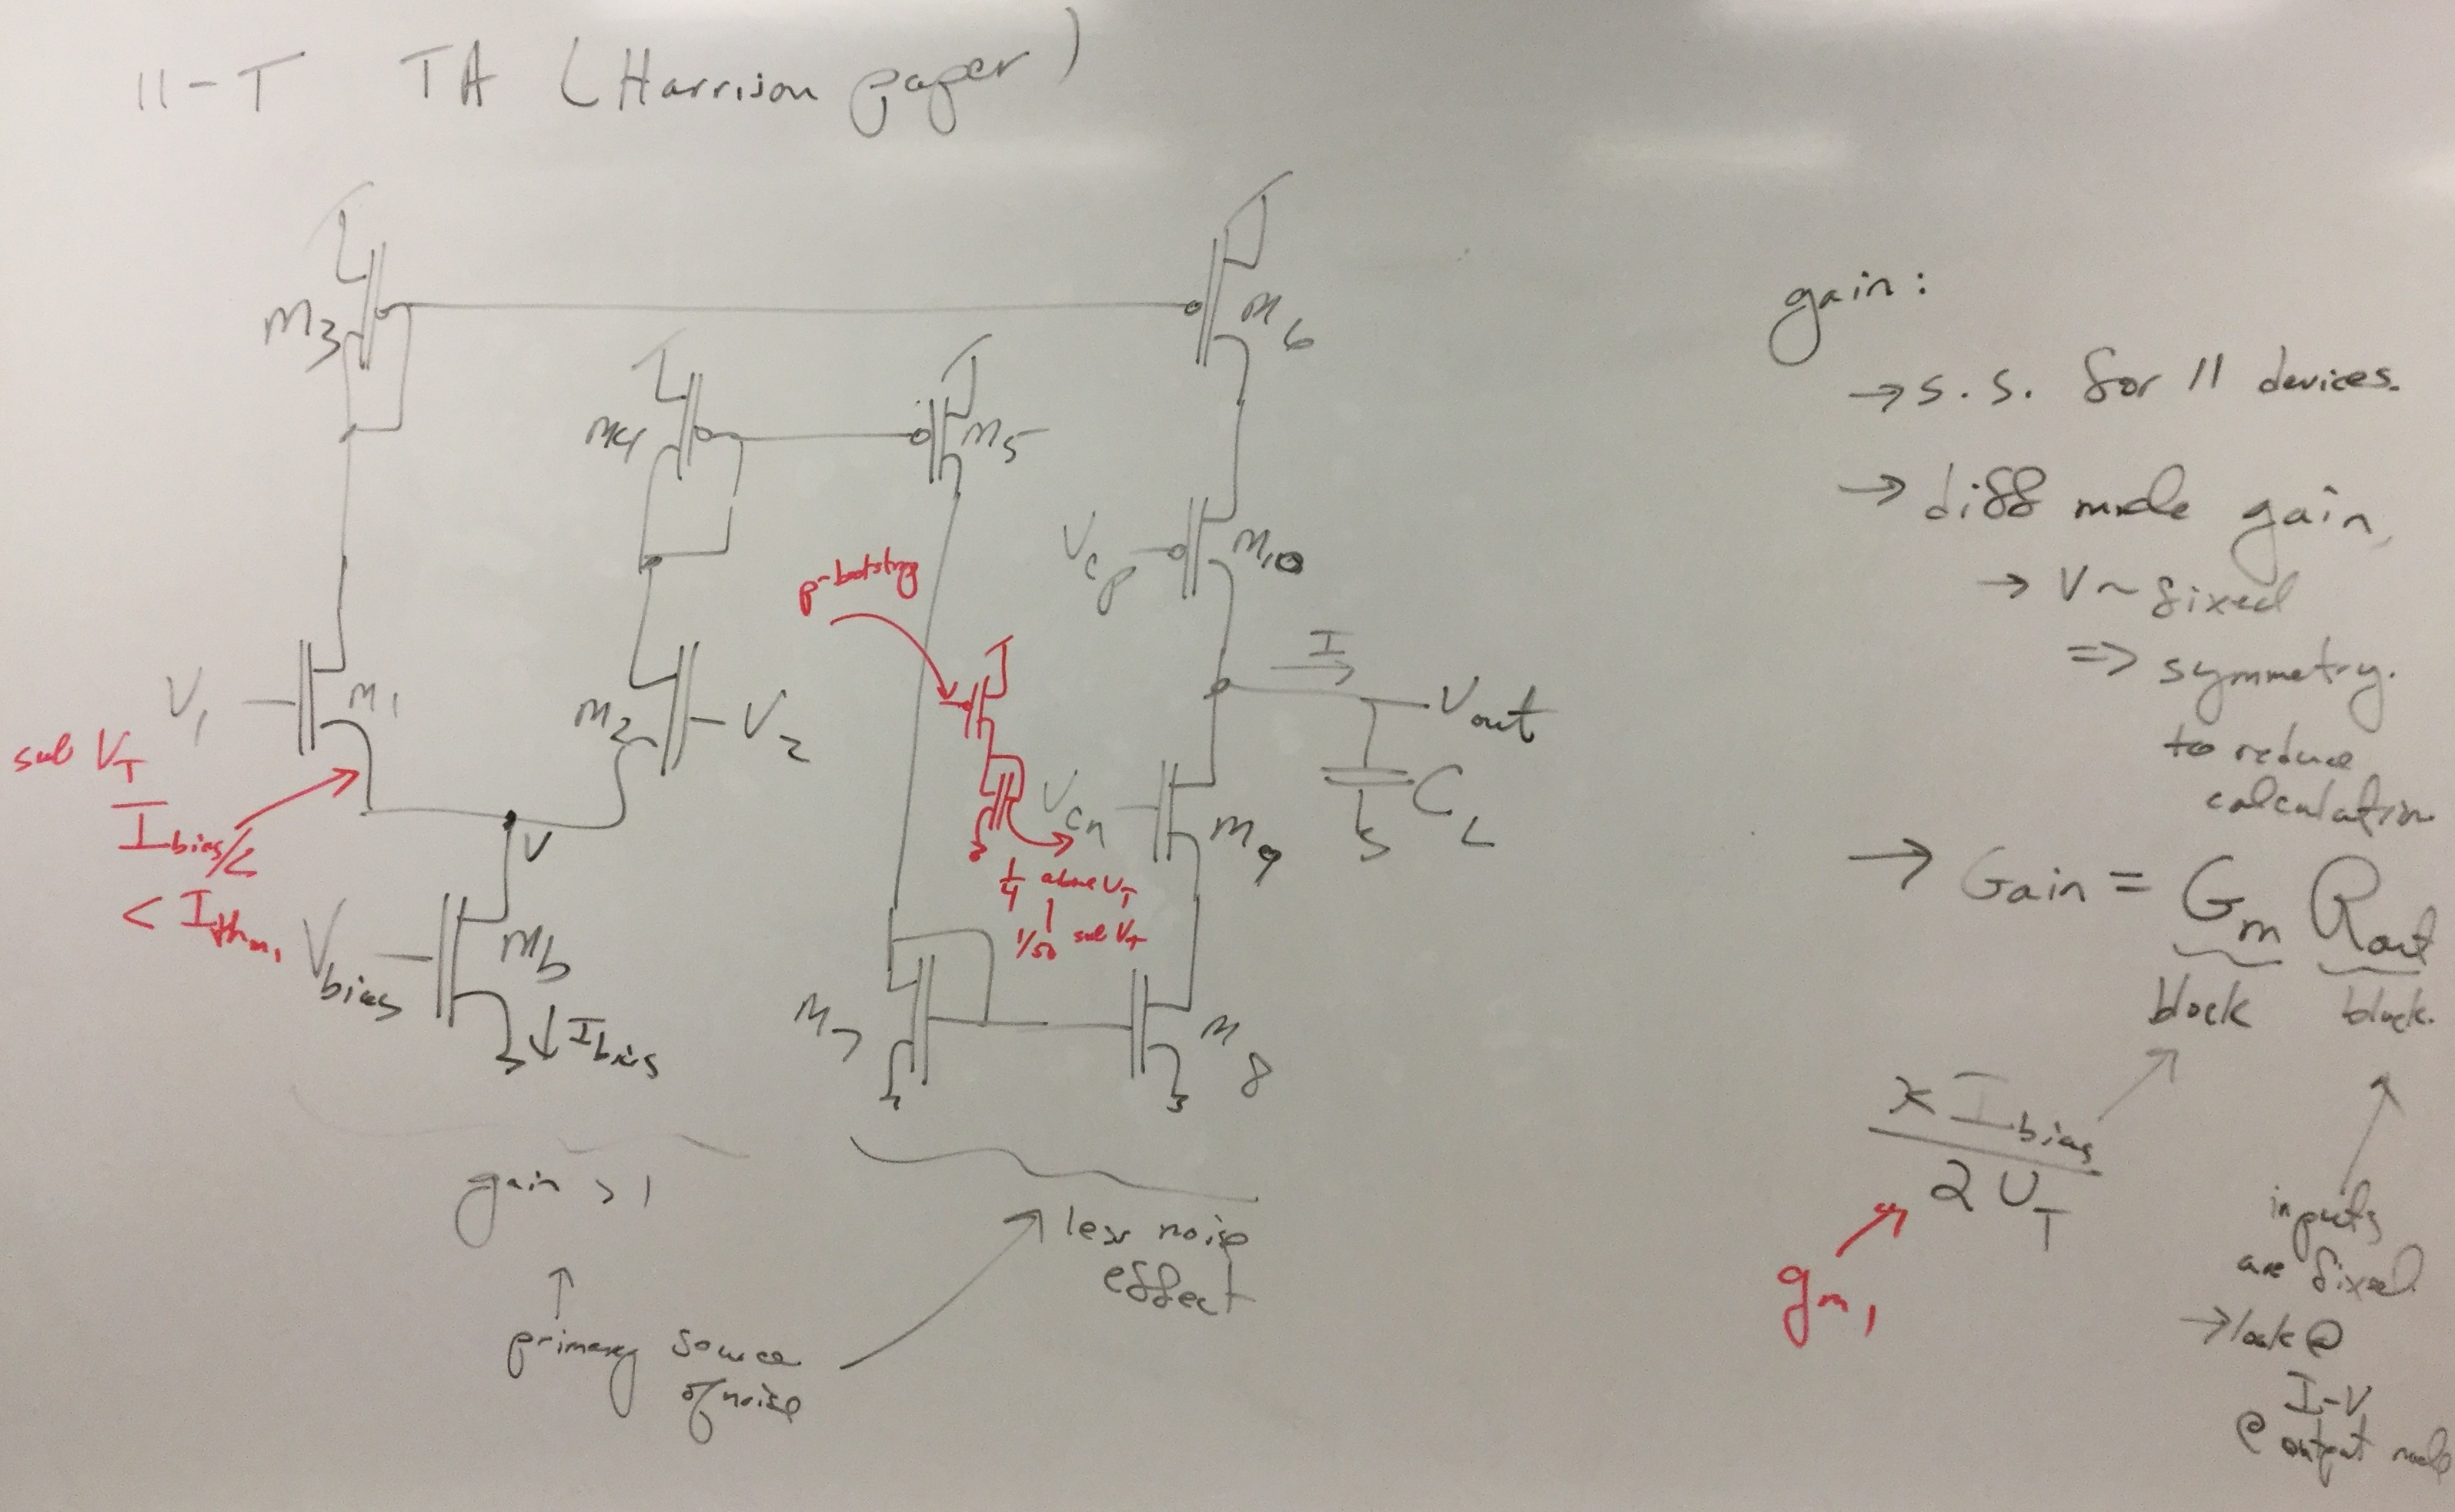 11-T TA (Harrison paper)
M3
M6
M4
M5
Vcp
M10
p-bootstrap
I
V1
M1
M2
V2
Vout
sub VT
Ibias/2
< Ithm1
V
Vcn
M9
CL
1/4 above VT
1/50 sub VT
Vbias
Mb
Ibias
M7
M8
gain > 1
less noise
effect
primary source
of noise
gain:
→ s.s. for 11 devices.
→ diff mode gain,
→ V ~ fixed
=> symmetry.
to reduce
calculation
→ Gain = Gm Rout
block block.
κ Ibias
2 UT
gm1
inputs
are fixed
→ look @
I-V
@ output node